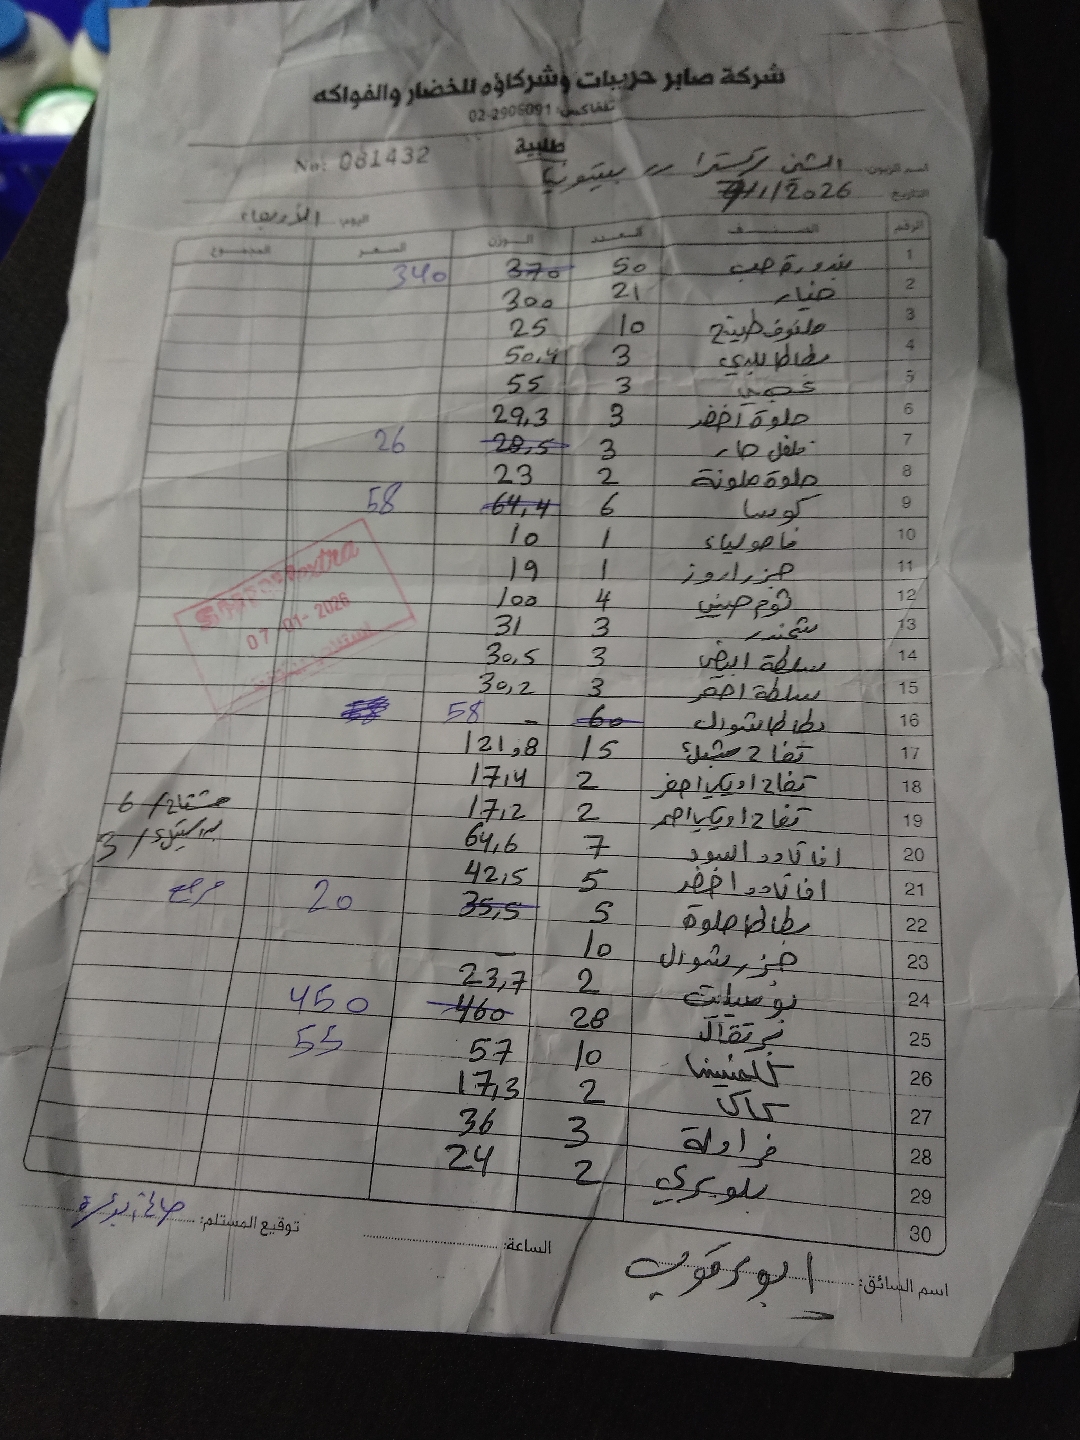 شركة صابر حريبات وشركاؤه للخضار والفواكه
تلفاكس: 02-2906091
طلبية
No: 081432
اسم الزبون: الشني اكسترا -- بيتونيا
التاريخ 7/1/2026
اليوم: الأربعاء
الرقم الصنف العدد الوزن السعر المجموع
1 بندورة حب 50 370 340
2 خيار 21 300
3 ملفوف طبيخ 10 25
4 بطاطا بلدي 3 50,4
5 3 55
6 حلوة اخضر 3 29,3
7 فلفل حار 3 28,5 26
8 حلوة ملونة 2 23
9 كوسا 6 64,4 58
10 فاصولياء 1 10
11 جزر اروز 1 19
12 ثوم صيني 4 100
13 شمندر 3 31
14 سلطة ابيض 3 30,5
15 سلطة احمر 3 30,2
16 بطاطا شوال 60 - 58
17 تفاح 15 121,8
18 تفاح اخضر 2 17,4
19 تفاح احمر 2 17,2
20 افاكادو اسود 7 64,6
21 افاكادو اخضر 5 42,5
22 بطاطا حلوة 5 35,5 20
23 جزر شوال 10 -
24 2 23,7
25 برتقال 28 460 450
26 كلمنتينا 10 57 55
27 كاكا 2 17,3
28 فراولة 3 36
29 بلوبري 2 24
30
مشتاح / 6
/ 3
extra
07-01-2026
اسم السائق:
الساعة:
توقيع المستلم: